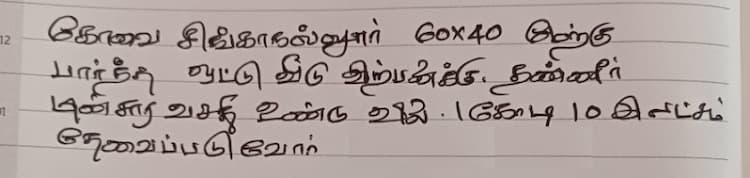 கோவை சிங்காநல்லூர் 60x40 கிழக்கு
பார்த்த ஓட்டு வீடு விற்பனைக்கு. தண்ணீர்
மின்சார வசதி உண்டு விலை. 1 கோடி 10 இலட்சம்
தேவைப்படுவோர்